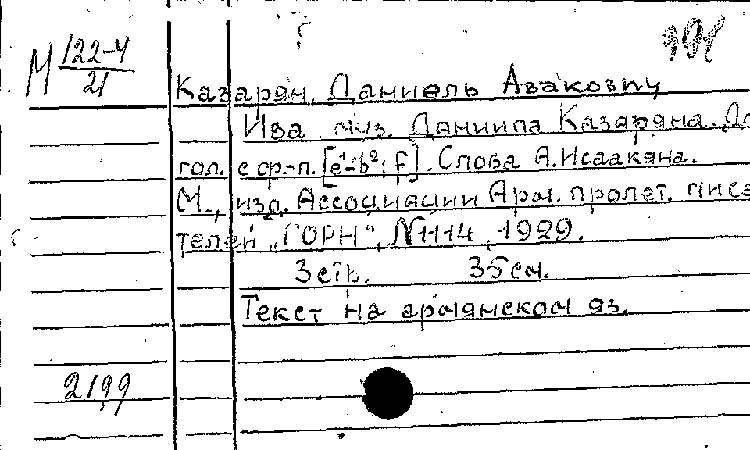 М 122-4
21
Казарян, Даниель Авакович
Ива муз. Даниила Казаряна. Дл
гол. с ф.-п. [e¹-b²; f]. Слова А. Исаакяна.
М., изд. Ассоциации Арм. пролет. писа
телей „ГОРН“, N1114, 1929.
3 стр. 35 см.
Текст на армянском яз.
2199